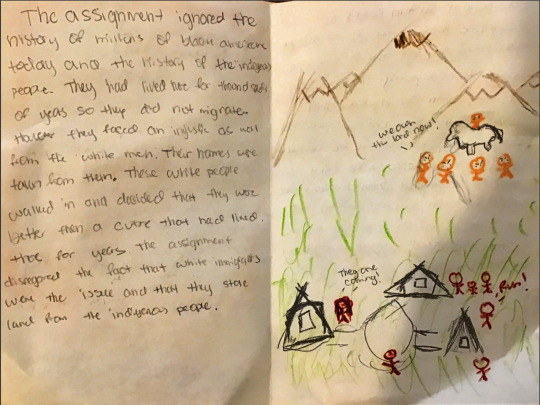 The assignment ignored the
history of millions of black americans
today and the History of the indigenous
people. They had lived here for thousands
of years so they did not migrate.
However they faced an injustic as well
from the white men. Their homes were
taken from them. These white people
walked in and decided that they were
better then a that had lived
there for years. The assignment
disregard the fact that white immigrants
were the issue and that they stole
land from the indigenous people.
we own
this land now!
They are
coming!
Run!